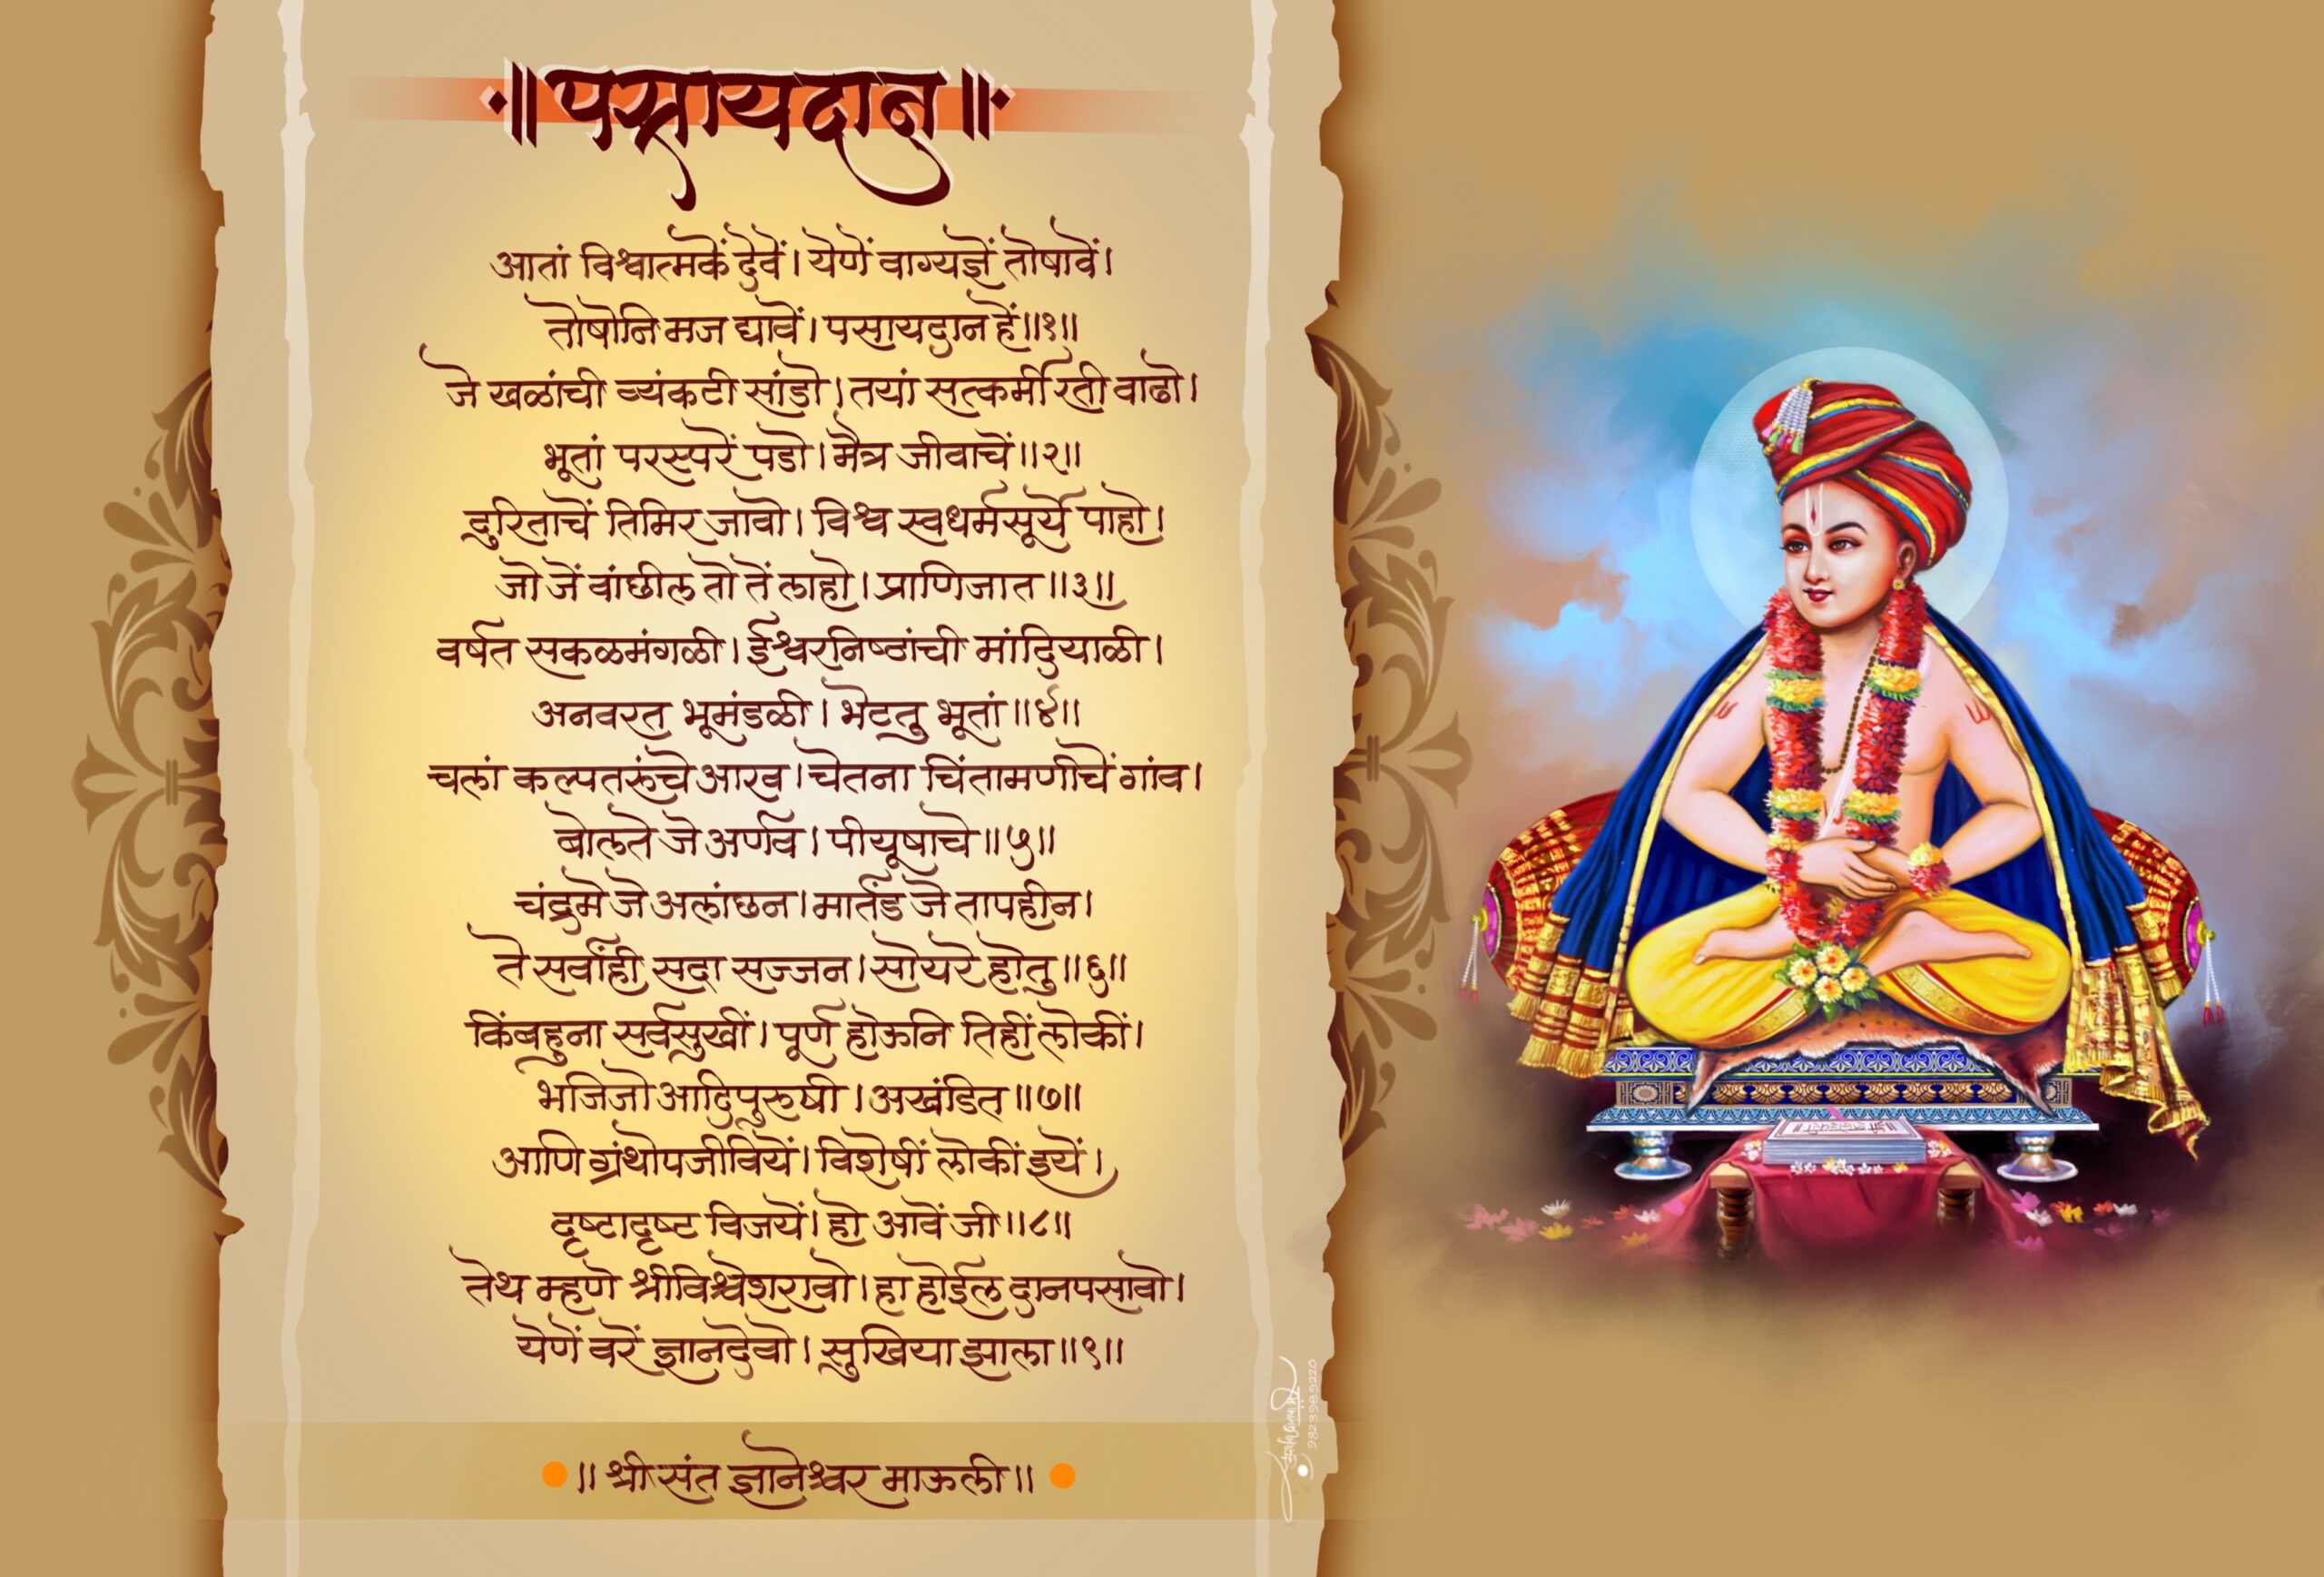 ॥पसायदान॥
आतां विश्वात्मकें देवें। येणें वाग्यज्ञें तोषावें।
तोषोनि मज द्यावें। पसायदान हें॥१॥
जे खळांची व्यंकटी सांडो। तयां सत्कर्मी रती वाढो।
भूतां परस्परें पडो। मैत्र जीवाचें॥२॥
दुरिताचें तिमिर जावो। विश्व स्वधर्मसूर्यें पाहो।
जो जें वांछील तो तें लाहो। प्राणिजात॥३॥
वर्षत सकळमंगळी। ईश्वरनिष्ठांची मांदियाळी।
अनवरत भूमंडळी। भेटतु भूतां॥४॥
चलां कल्पतरूंचे आरव। चेतना चिंतामणीचें गांव।
बोलते जे अर्णव। पीयूषाचे॥५॥
चंद्रमे जे अलांछन। मार्तंड जे तापहीन।
ते सर्वांही सदा सज्जन। सोयरे होतु॥६॥
किंबहुना सर्वसुखीं। पूर्ण होऊनि तिहीं लोकीं।
भजिजो आदिपुरूषी। अखंडित॥७॥
आणि ग्रंथोपजीवियें। विशेषीं लोकीं इयें।
दृष्टादृष्ट विजयें। हो आवें जी॥८॥
तेथ म्हणे श्रीविश्वेशरावो। हा होईल दानपसावो।
येणें वरें ज्ञानदेवो। सुखिया झाला॥९॥
॥ श्री संत ज्ञानेश्वर माऊली॥
9823989220